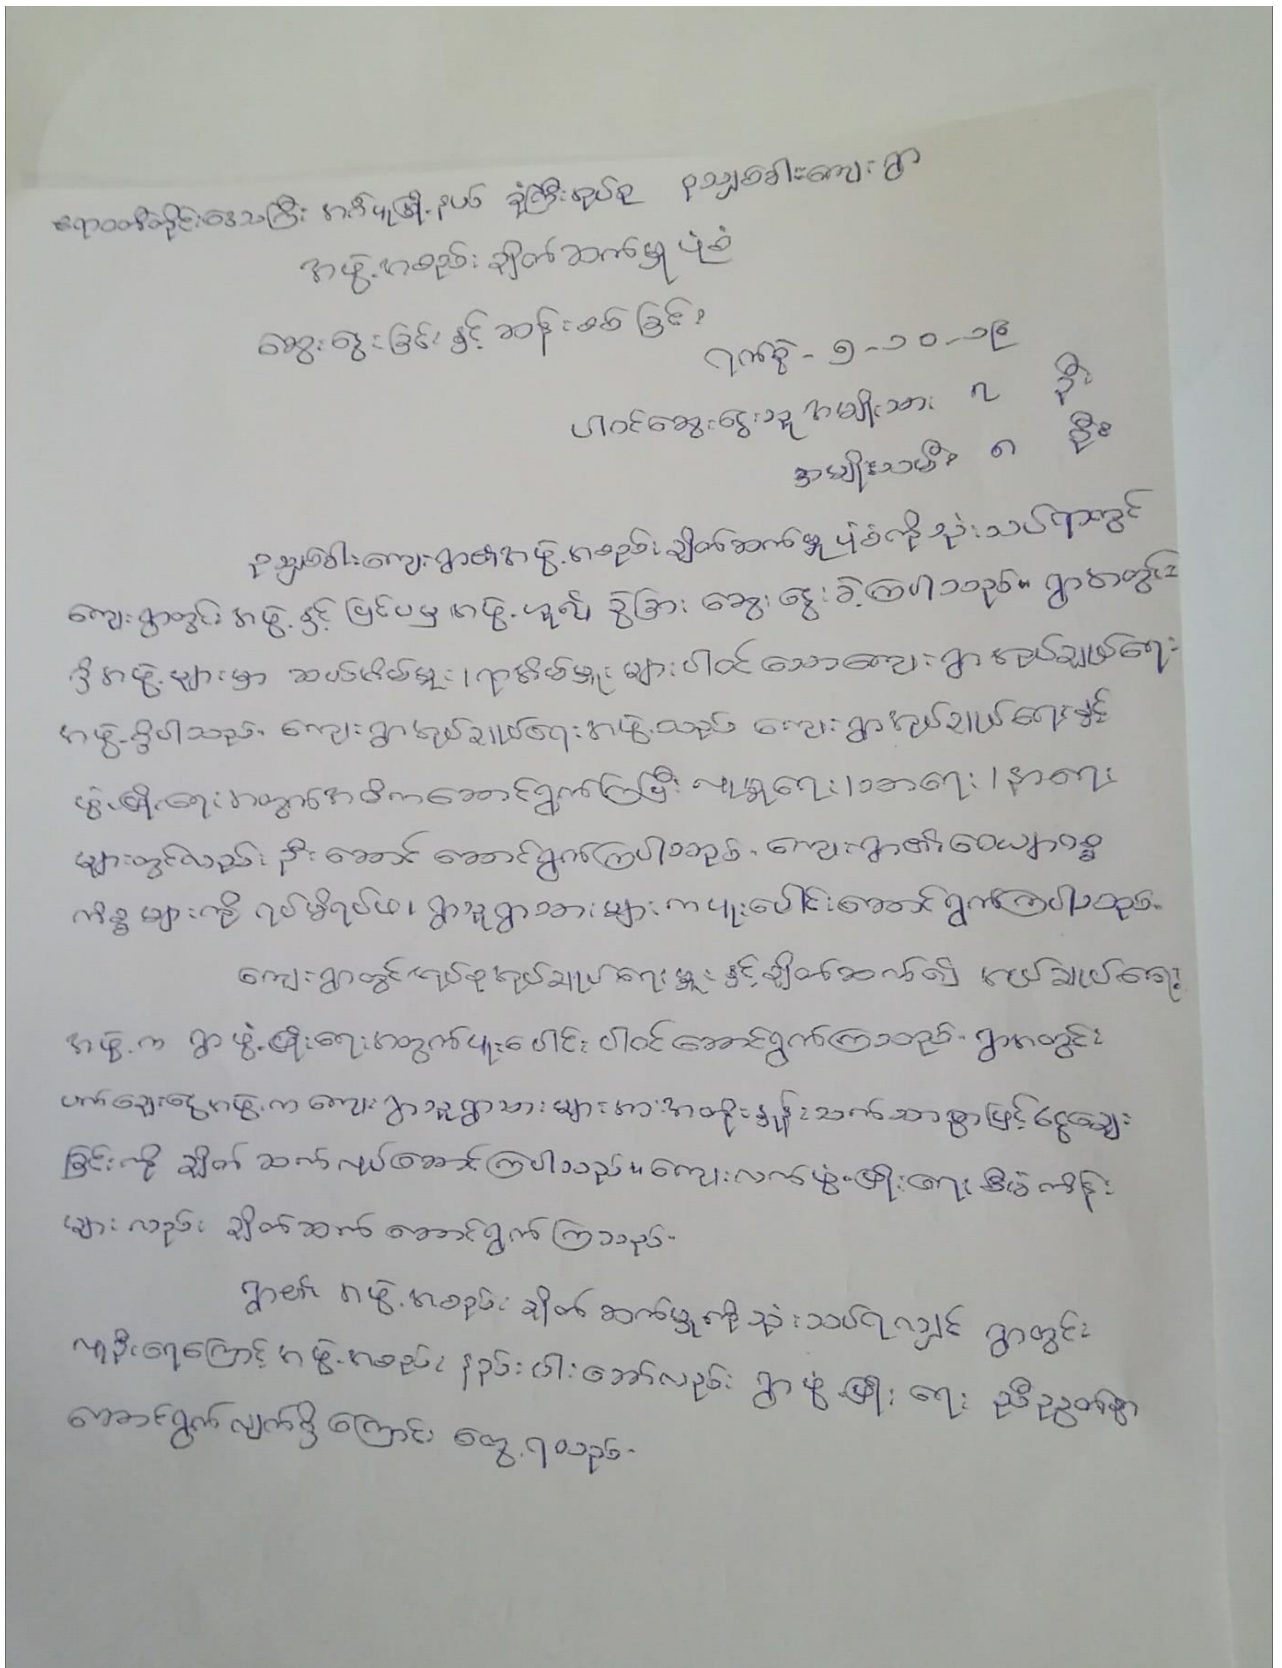 ဧရာဝတီတိုင်းဒေသကြီး အင်္ဂပူမြို့နယ် ခုံကြီးအုပ်စု ကျေးရွာ
အဖွဲ့အစည်း ချိတ်ဆက်မှု ပုံစံ
ဆွေးနွေးခြင်း နှင့် ဆန်းစစ်ခြင်း
ရက်စွဲ - ၅-၁၀-၁၉
ပါဝင်ဆွေးနွေးသူ အမျိုးသား ၇ ဦး
အမျိုးသမီး ၈ ဦး
ကျေးရွာ၏ အဖွဲ့အစည်း ချိတ်ဆက်မှု ပုံစံကို သုံးသပ်ရာတွင်
ကျေးရွာတွင်း အဖွဲ့ နှင့် ပြင်ပမှ အဖွဲ့ဟူ၍ ခွဲခြား ဆွေးနွေးခဲ့ကြပါသည်။ ရွာအတွင်း
ရှိအဖွဲ့များမှာ ဆယ်အိမ်မှူး၊ ရာအိမ်မှူး များပါဝင်သောကျေးရွာ အုပ်ချုပ်ရေး
အဖွဲ့ရှိပါသည်။ ကျေးရွာအုပ်ချုပ်ရေးအဖွဲ့သည် ကျေးရွာအုပ်ချုပ်ရေးနှင့်
ဖွံ့ဖြိုးရေးအတွက်အဓိကဆောင်ရွက်ကြပြီး လူမှုရေး၊သာရေး၊နာရေး
များတွင်လည်း ဦးဆောင် ဆောင်ရွက်ကြပါသည်။ ကျေးရွာ၏ဝေယျာဝစ္စ
ကိစ္စများကို ရပ်မိရပ်ဖ၊ ရွာသူရွာသားများကပူးပေါင်းဆောင်ရွက်ကြပါသည်။
ကျေးရွာတွင် အုပ်စုအုပ်ချုပ်ရေးမှူး နှင့်ချိတ်ဆက်၍ အုပ်ချုပ်ရေး
အဖွဲ့က ရွာဖွံ့ဖြိုးရေးအတွက်ပူးပေါင်း ပါဝင်ဆောင်ရွက်ကြသည်။ ရွာအတွင်း
ချေးငွေအဖွဲ့က ကျေးရွာသူရွာသားများအားအတိုးနှုန်းသက်သာစွာဖြင့်ငွေချေး
ခြင်းကို ချိတ်ဆက်လုပ်ဆောင်ကြပါသည်။ကျေးလက်ဖွံ့ဖြိုးရေး စီမံကိန်း
များ လည်း ချိတ်ဆက် ဆောင်ရွက်ကြသည်။
ရွာ၏ အဖွဲ့အစည်း ချိတ်ဆက်မှုကို သုံးသပ်ရလျှင် ရွာတွင်း
လူဦးရေကြောင့် အဖွဲ့အစည်း နည်းပါးသော်လည်း ရွာဖွံ့ဖြိုးရေး ညီညွတ်စွာ
ဆောင်ရွက်လျက်ရှိကြောင်း တွေ့ရသည်။